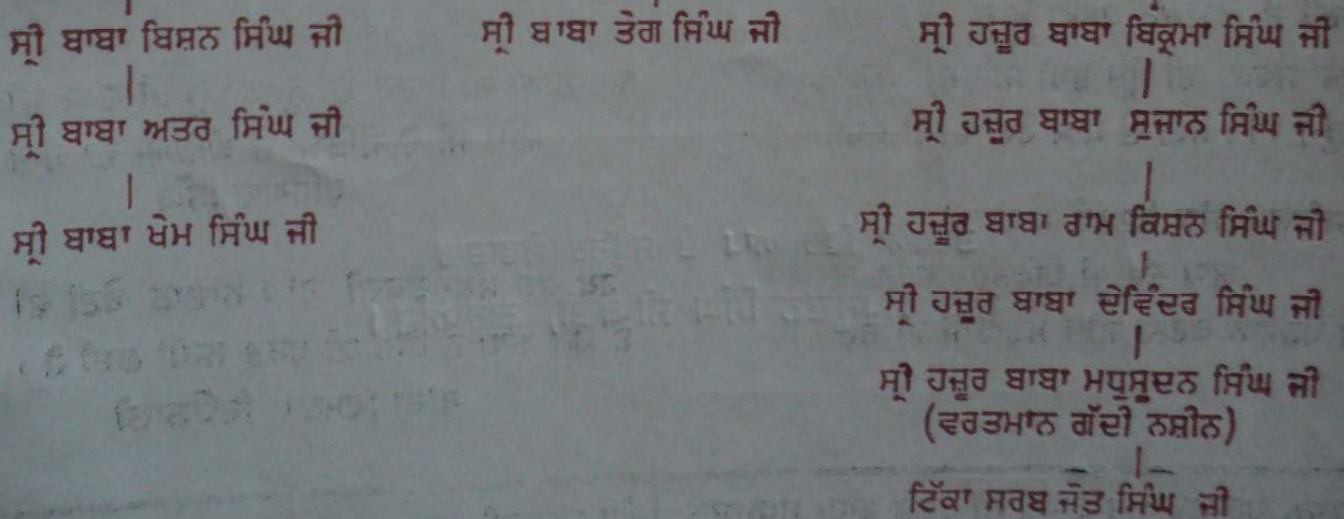 ਸ੍ਰੀ ਬਾਬਾ ਬਿਸ਼ਨ ਸਿੰਘ ਜੀ
ਸ੍ਰੀ ਬਾਬਾ ਤੇਗ ਸਿੰਘ ਜੀ
ਸ੍ਰੀ ਹਜ਼ੂਰ ਬਾਬਾ ਬਿਕ੍ਰਮਾ ਸਿੰਘ ਜੀ
ਸ੍ਰੀ ਬਾਬਾ ਅਤਰ ਸਿੰਘ ਜੀ
ਸ੍ਰੀ ਹਜ਼ੂਰ ਬਾਬਾ ਸੁਜਾਨ ਸਿੰਘ ਜੀ
ਸ੍ਰੀ ਬਾਬਾ ਖੇਮ ਸਿੰਘ ਜੀ
ਸ੍ਰੀ ਹਜ਼ੂਰ ਬਾਬਾ ਰਾਮ ਕਿਸ਼ਨ ਸਿੰਘ ਜੀ
ਸ੍ਰੀ ਹਜ਼ੂਰ ਬਾਬਾ ਦੇਵਿੰਦਰ ਸਿੰਘ ਜੀ
ਸ੍ਰੀ ਹਜ਼ੂਰ ਬਾਬਾ ਮਧੁਸੂਦਨ ਸਿੰਘ ਜੀ
(ਵਰਤਮਾਨ ਗੱਦੀ ਨਸ਼ੀਨ)
ਟਿੱਕਾ ਸਰਬ ਜੋਤ ਸਿੰਘ ਜੀ